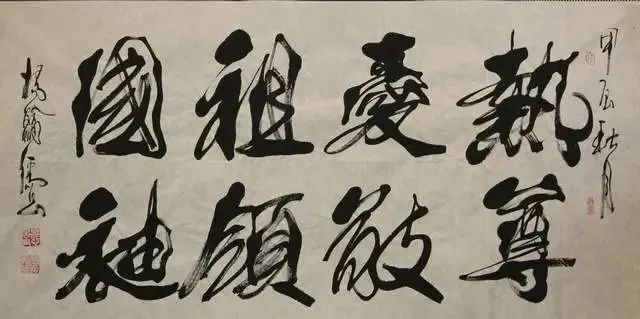 甲辰秋月
熱愛祖國
尊敬領袖
楊